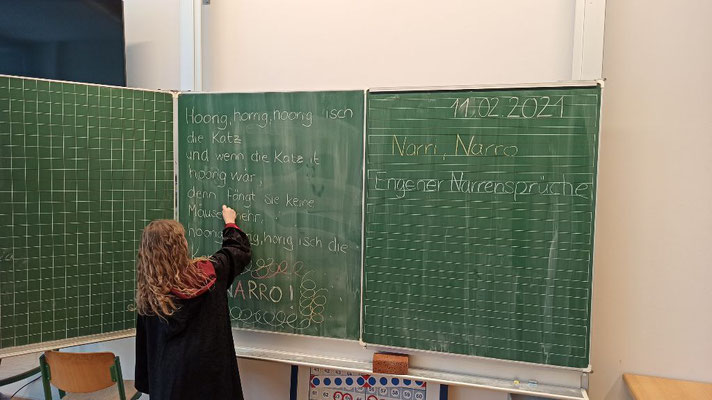 Hoorig, horrig, hoorig isch
die Katz
und wenn die Katz it
hoorig wär,
denn fängt sie keine
Mäuse mehr,
horig isch die
NARRO!
11.02.2021
Narri, Narro
Engener Narrensprüche